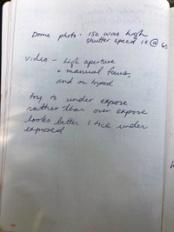 Dome photo - ISO was high
shutter speed 10 @ 60
video - high aperture
+ manual focus,
and on tripod
try to under expose
rather than over expose
looks better / nice under
exposed